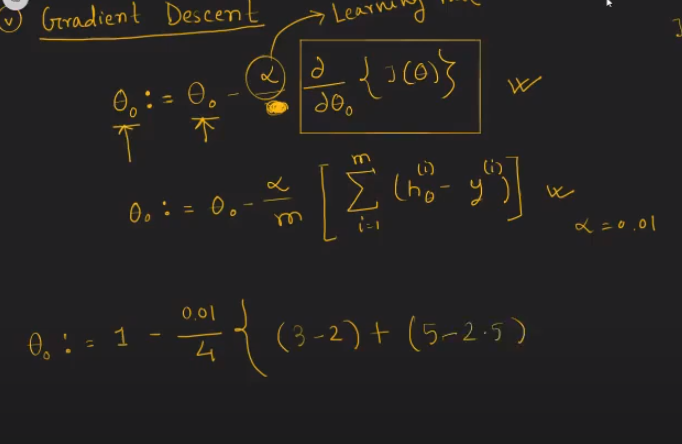 (v) Gradient Descent → Learning
θ₀ := θ₀ - α ∂/∂θ₀ { J(θ) }
θ₀ := θ₀ - α/m [ Σ_{i=1}^{m} (h_θ^{(i)} - y^{(i)}) ]
α = 0.01
θ₀ := 1 - 0.01/4 { (3-2) + (5-2.5)